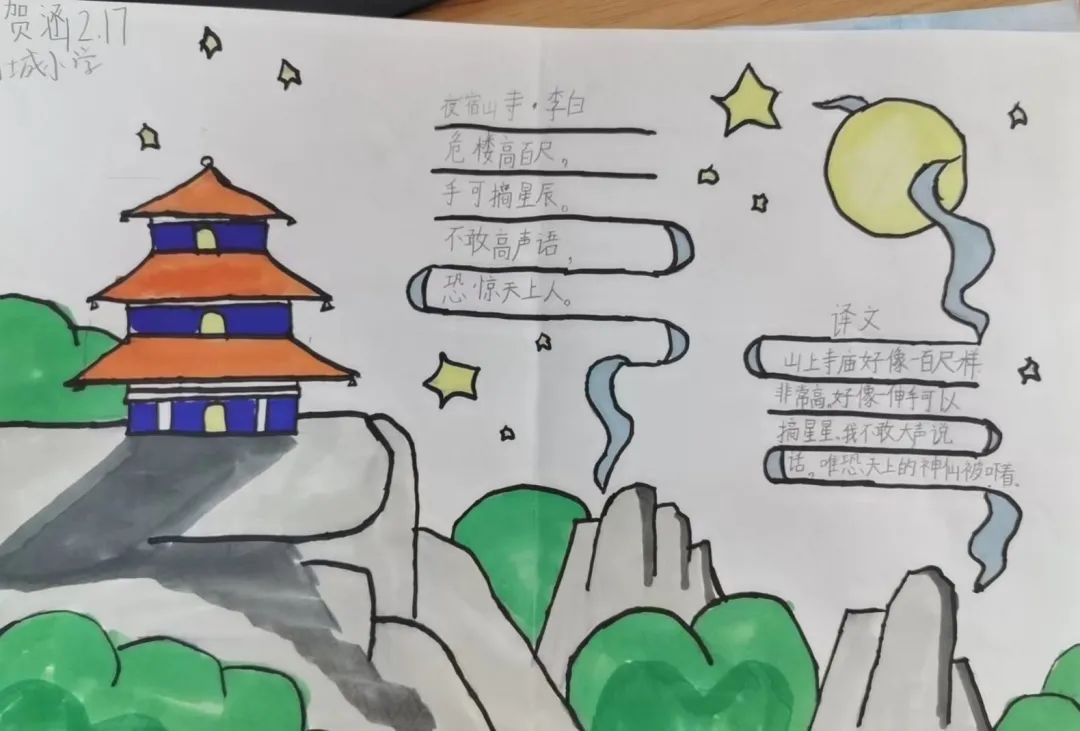 贺涵2.17
城小学
夜宿山寺·李白
危楼高百尺，
手可摘星辰。
不敢高声语，
恐惊天上人。
译文
山上寺庙好像一百尺样
非常高。好像一伸手可以
摘星星。我不敢大声说
话。唯恐天上的神仙被吓着。